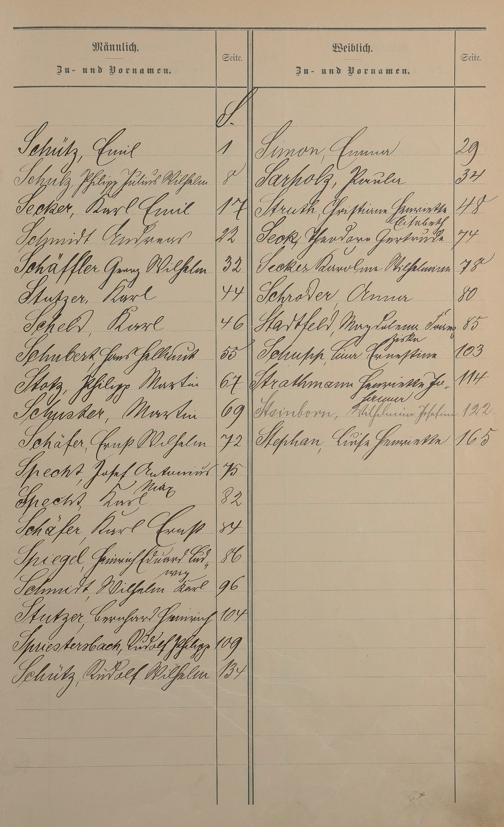 Männlich.
Zu- und Vornamen.
Seite.
Weiblich.
Zu- und Vornamen.
Seite.
S.
Schütz, Emil 1
Schütz, Philipp Julius Wilhelm 8
Secker, Karl Emil 17
Schmidt Andreas 22
Schäffler Georg Wilhelm 32
Stutzer, Karl 44
Scheld, Karl 46
Schubert Hans Hellmut 55
Stotz, Philipp Martin 67
Schuster, Martin 69
Schäfer, Ernst Wilhelm 72
Specht, Josef Antonius 75
Specht, Karl Max 82
Schäfer, Karl Ernst 84
Spiegel, Heinrich Eduard Lud-
wig 86
Schmidt, Wilhelm Karl 96
Stutzer, Bernhard Heinrich 104
Spriestersbach, Rudolf Philipp 109
Schütz, Rudolf Wilhelm 134
Simon, Emma 29
Sarholz, Paula 34
Struth, Christiane Henriette
Elisabeth 48
Seck, Theodore Gertrude 74
Secker Karoline Wilhelmine 78
Schroder, Anna 80
Stadtfeld, Magdalena Fran
ziska 85
Schupp, Ernestine 103
Strathmann Henriette Jo-
hanna 114
Steinborn, Wilhelmine Josefine 122
Stephan, Luise Henriette 165